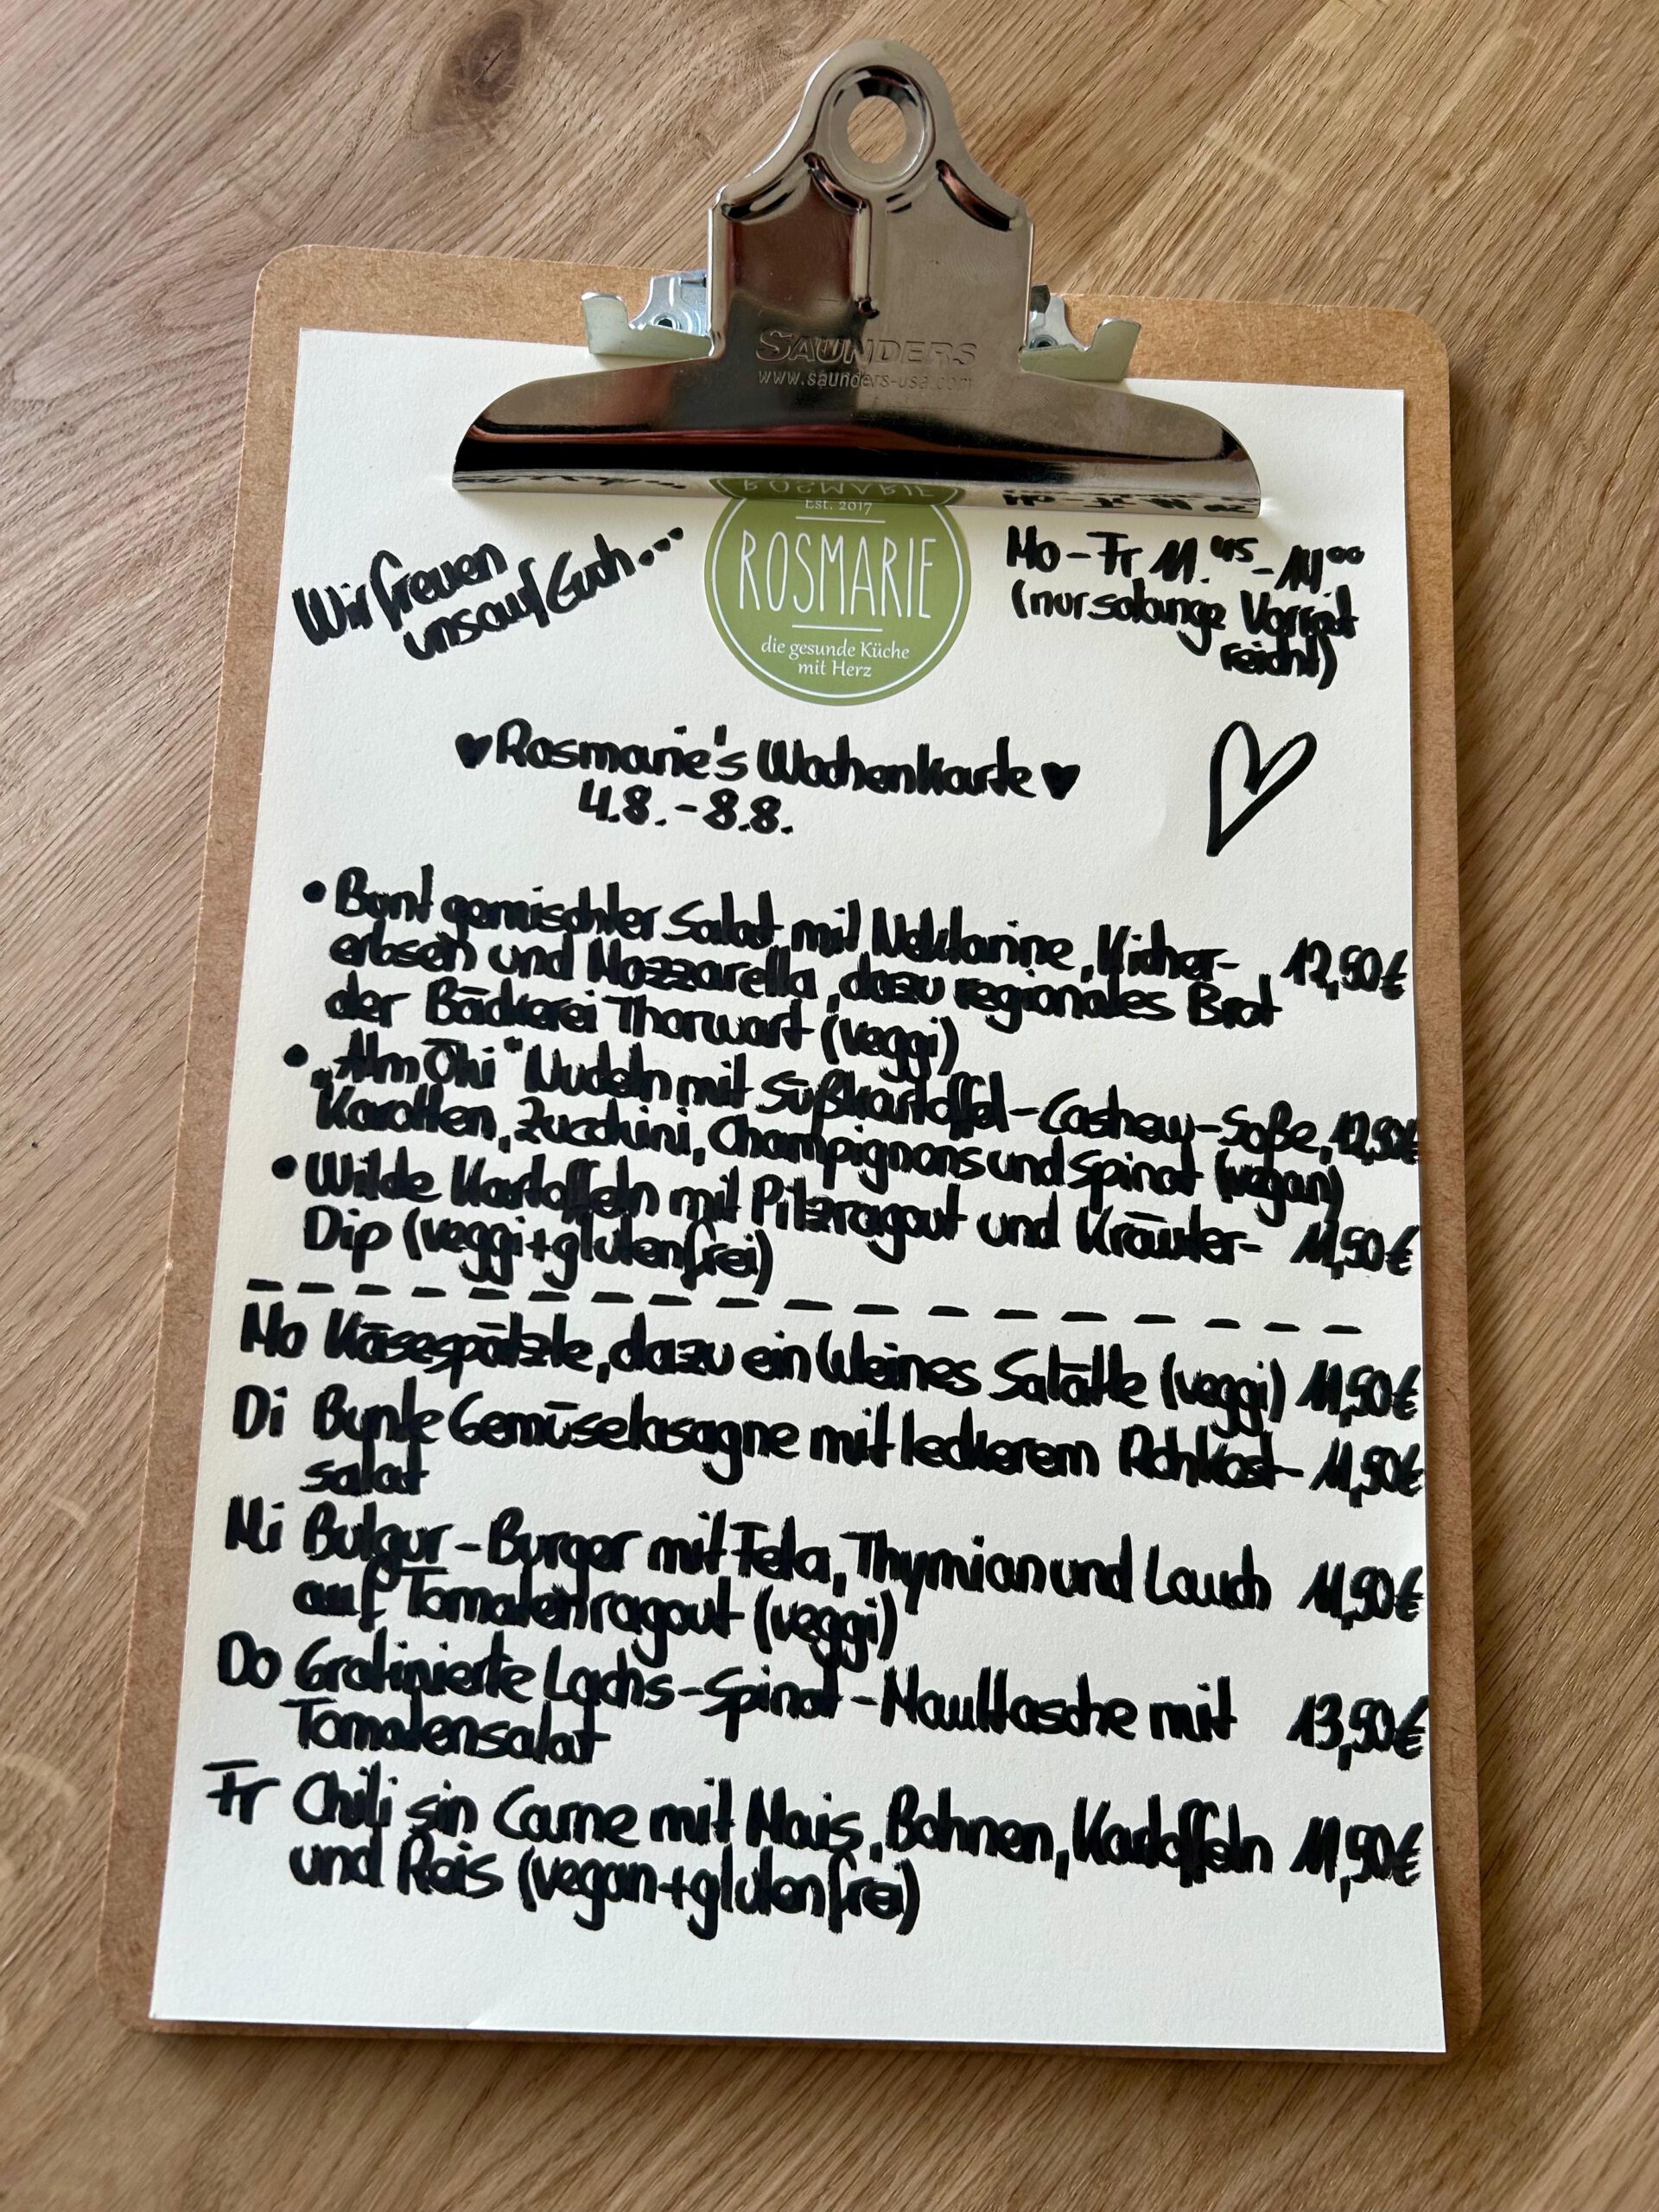 SAUNDERS
www.saunders-usa.com
Est. 2017
ROSMARIE
die gesunde Küche
mit Herz
Wir freuen
uns auf Euch...
Mo-Fr 11.45-14.00
(nur solange Vorrat
reicht)
♥Rosmarie's Wochenkarte♥
4.8.-8.8.
• Bunt gemischter Salat mit Nektarine, Kicher- 12,50€
erbsen und Mozzarella, dazu regionales Brot
der Bäckerei Thorwart (veggi)
• „Alm Öhi" Nudeln mit Süßkartoffel-Cashew-Soße, 12,50€
Karotten, Zucchini, Champignons und Spinat (vegan)
• Wilde Kartoffeln mit Pilzragout und Kräuter- 11,50€
Dip (veggi+glutenfrei)
Mo Käsespätzle, dazu ein kleines Salätle (veggi) 11,50€
Di Bunte Gemüselasagne mit leckerem Rohkost- 11,50€
salat
Mi Bulgur-Burger mit Feta, Thymian und Lauch 11,50€
auf Tomatenragout (veggi)
Do Gratinierte Lachs-Spinat-Maultasche mit 13,50€
Tomatensalat
Fr Chili sin Carne mit Mais, Bohnen, Kartoffeln 11,50€
und Reis (vegan+glutenfrei)